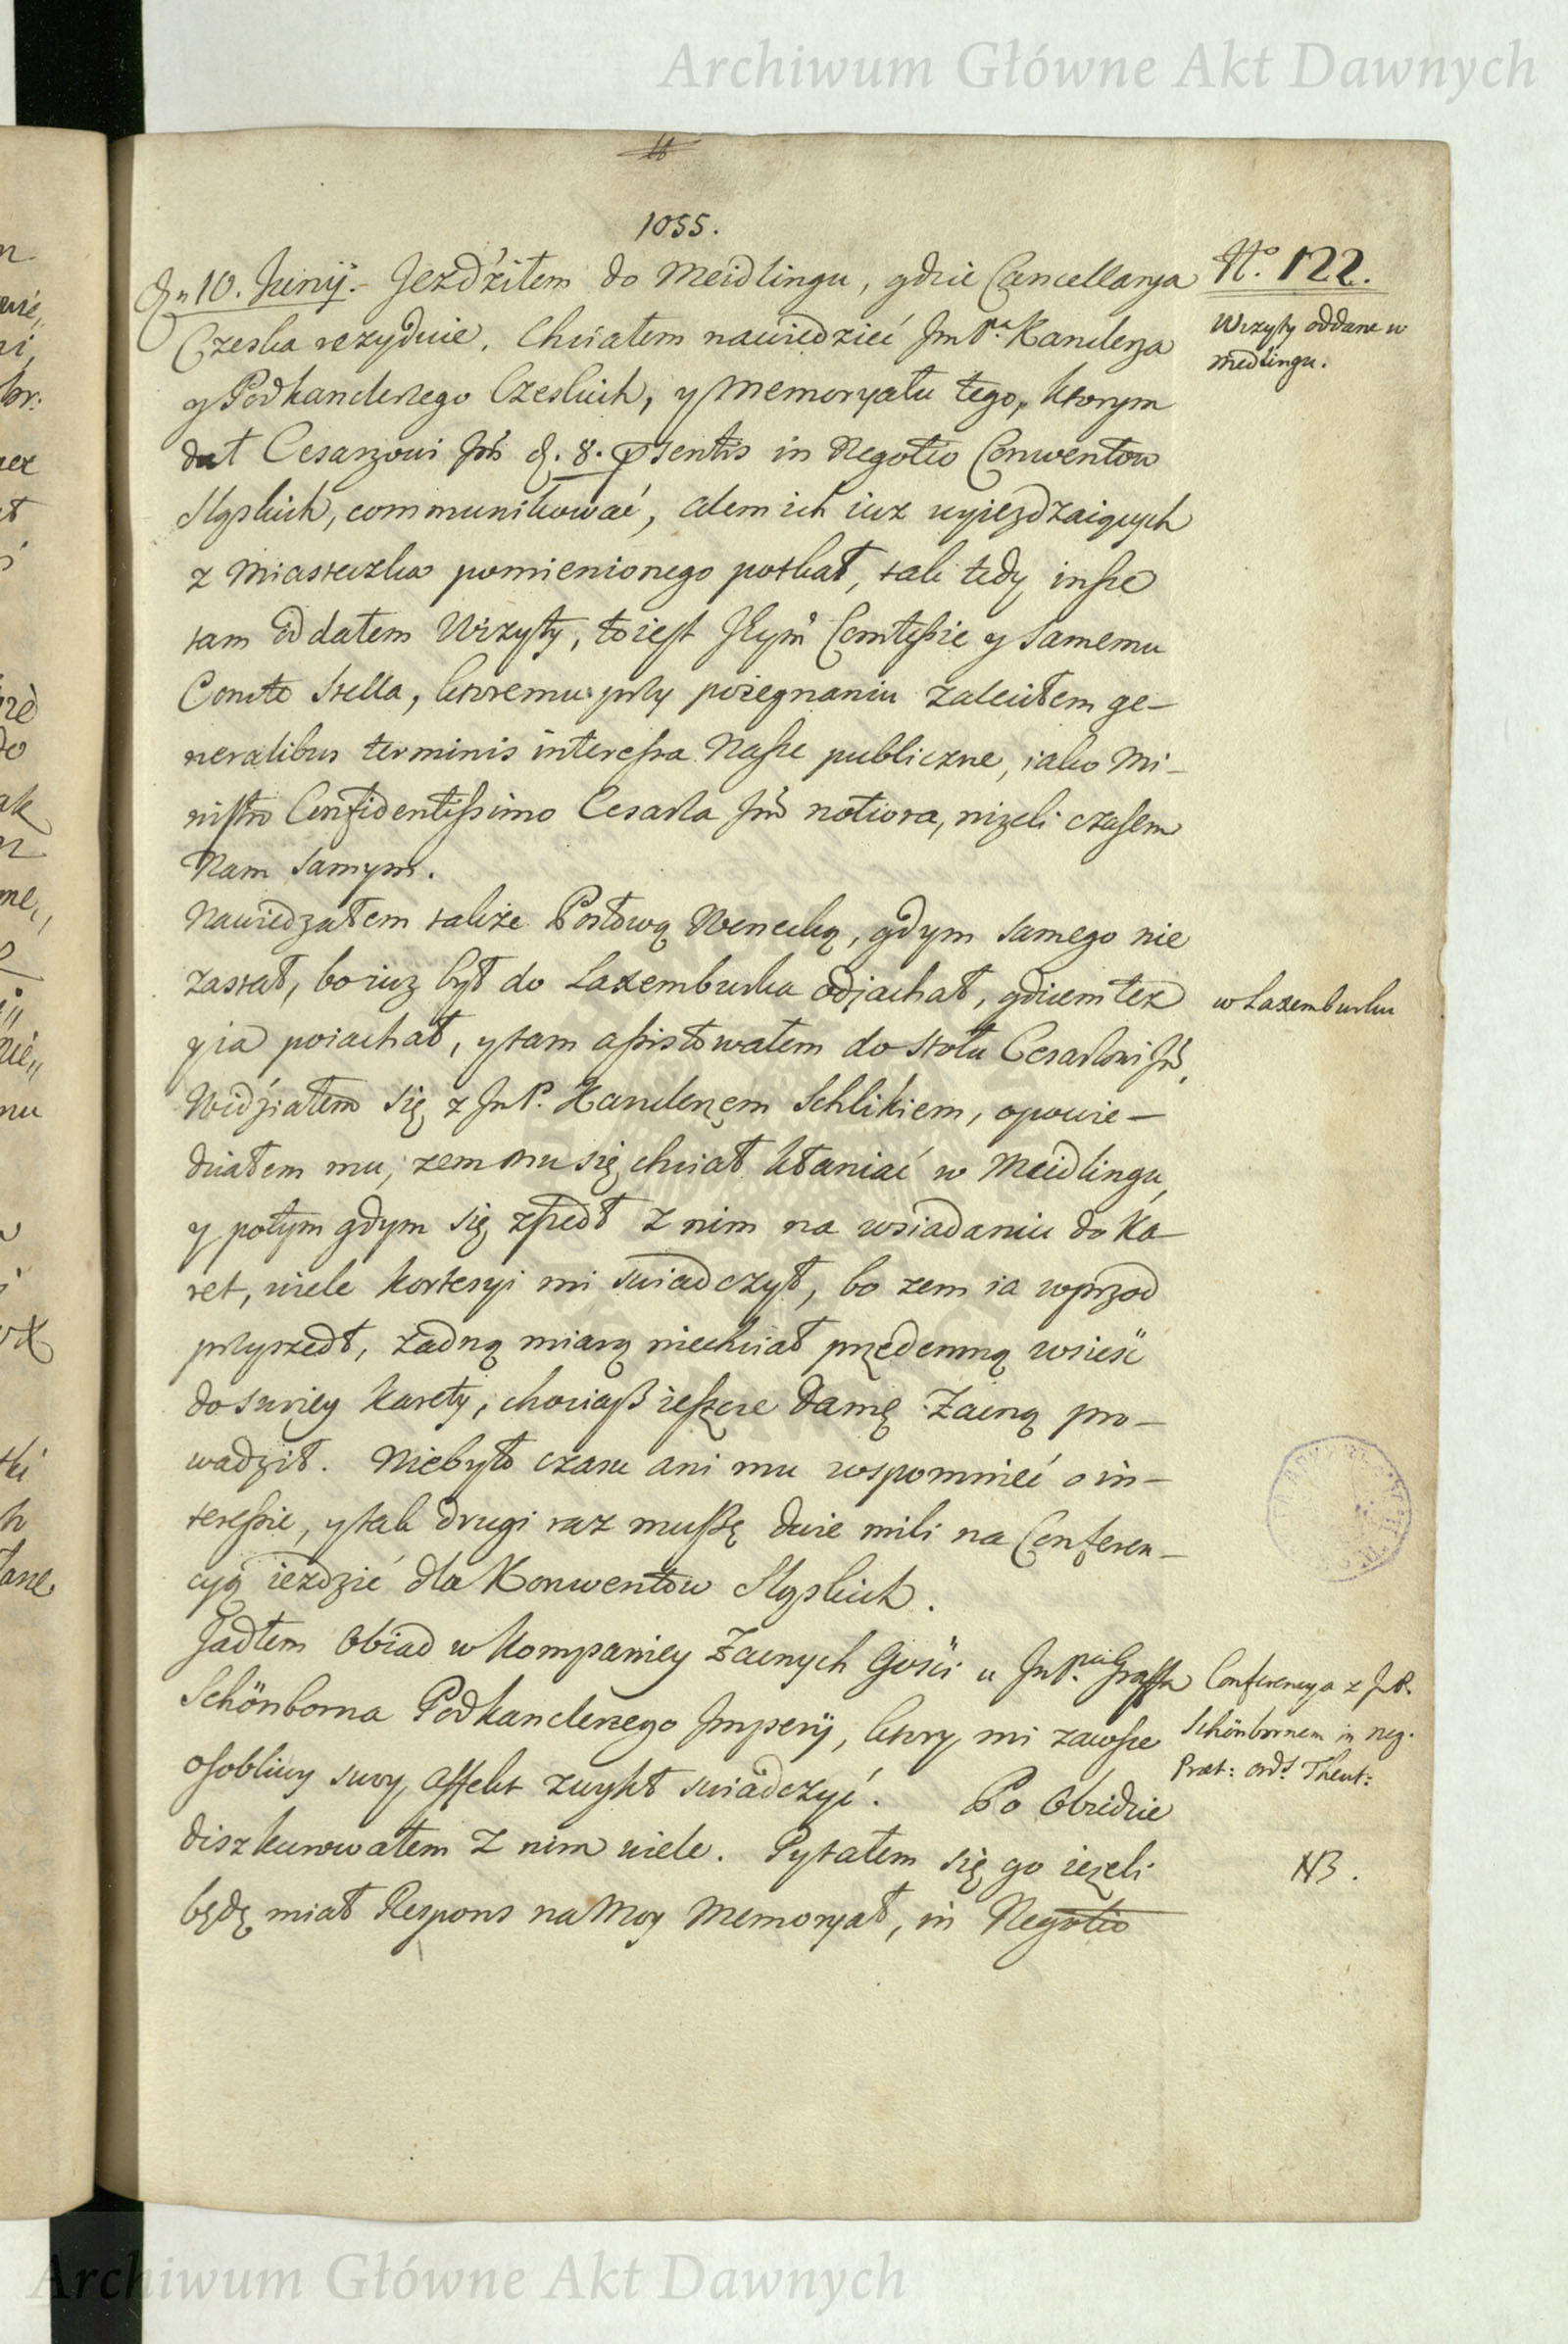 Archiwum Główne Akt Dawnych
1055.
No. 122.
Dn 10. Junij. Jezdźiłem do Meidlingu, gdzie Cancellarya
Czeska rezyduie. Chciałem nawiedzieć Jmp.na Kanclerza
y Podkanclerzego Czeskich, y Memoryału tego, ktorym
dał Cesarzowi Jmś d. 8. praesentis in Negotio Conwentow
Sląskich, communikować, alem ich iuz wyiezdzaiących
z Miasteczka pomienionego potkał, tak tedy insze
tam oddałem Wizyty, to iest JEym Comtessie y samemu
Comte Stella, ktoremu przy pożegnaniu zaleciłem ge-
neralibus terminis interessa Nasze publiczne, iako Mi-
nistro Confidentissimo Cesarza Jmś notiora, niżeli czasem
Nam samym.
Nawiedzałem takze Posłową Wenecką, gdym samego nie
zastał, bo iuz był do Laxemburka odjachał, gdziem tez
y ia poiachał, y tam assistowałem do stołu Cesarzowi Jmś.
Widziałem się z JmP. Kanclerzem Schlikiem, opowie-
działem mu, zem mu się chciał kłaniać w Meidlingu,
y potym gdym się zszedł z nim na wsiadaniu do Ka-
ret, wiele kortezyi mi swiadczył, bo zem ia wprzod
przyszedł, żadną miarą niechciał przedemną wsieść
do swoiey karety, chociaß ieszcze Damę Zacną pro-
wadził. Niebyło czasu ani mu wspomnieć o in-
teressie, y tak drugi raz muszę dwie mili na Conferen-
cyą iezdzić dla Konwentow Sląskich.
Jadłem Obiad w Kompaniey Zacnych Gości u JmP.na Graffa
Schönborna Podkanclerzego Imperij, ktory mi zawsze
osobliwy swoy Affekt zwykł swiadczyć. Po Obiedzie
diszkurowałem z nim wiele. Pytałem się go ieżeli
będę miał Respons na Moy Memoryał, in Negotio
Wizyty oddane w
Medlingu.
w Laxemburku
Conferencya z J.P.
Schönbornem in neg.
Praet: ord. Theut:
NB.
Archiwum Główne Akt Dawnych